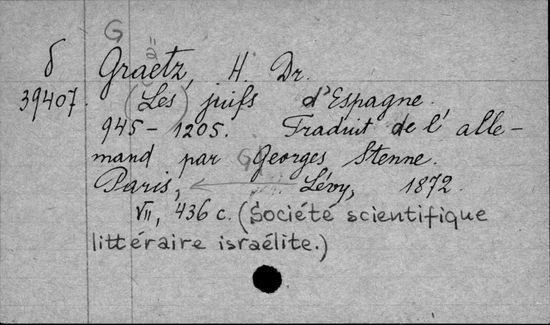 G
δ Graetz, H. Dr.
39407. (Les) juifs d'Espagne.
945 - 1205. Traduit de l'alle-
mand par Georges Stenne.
Paris, Lévy, 1872.
VII, 436 c. (Société scientifique
littéraire israélite.)